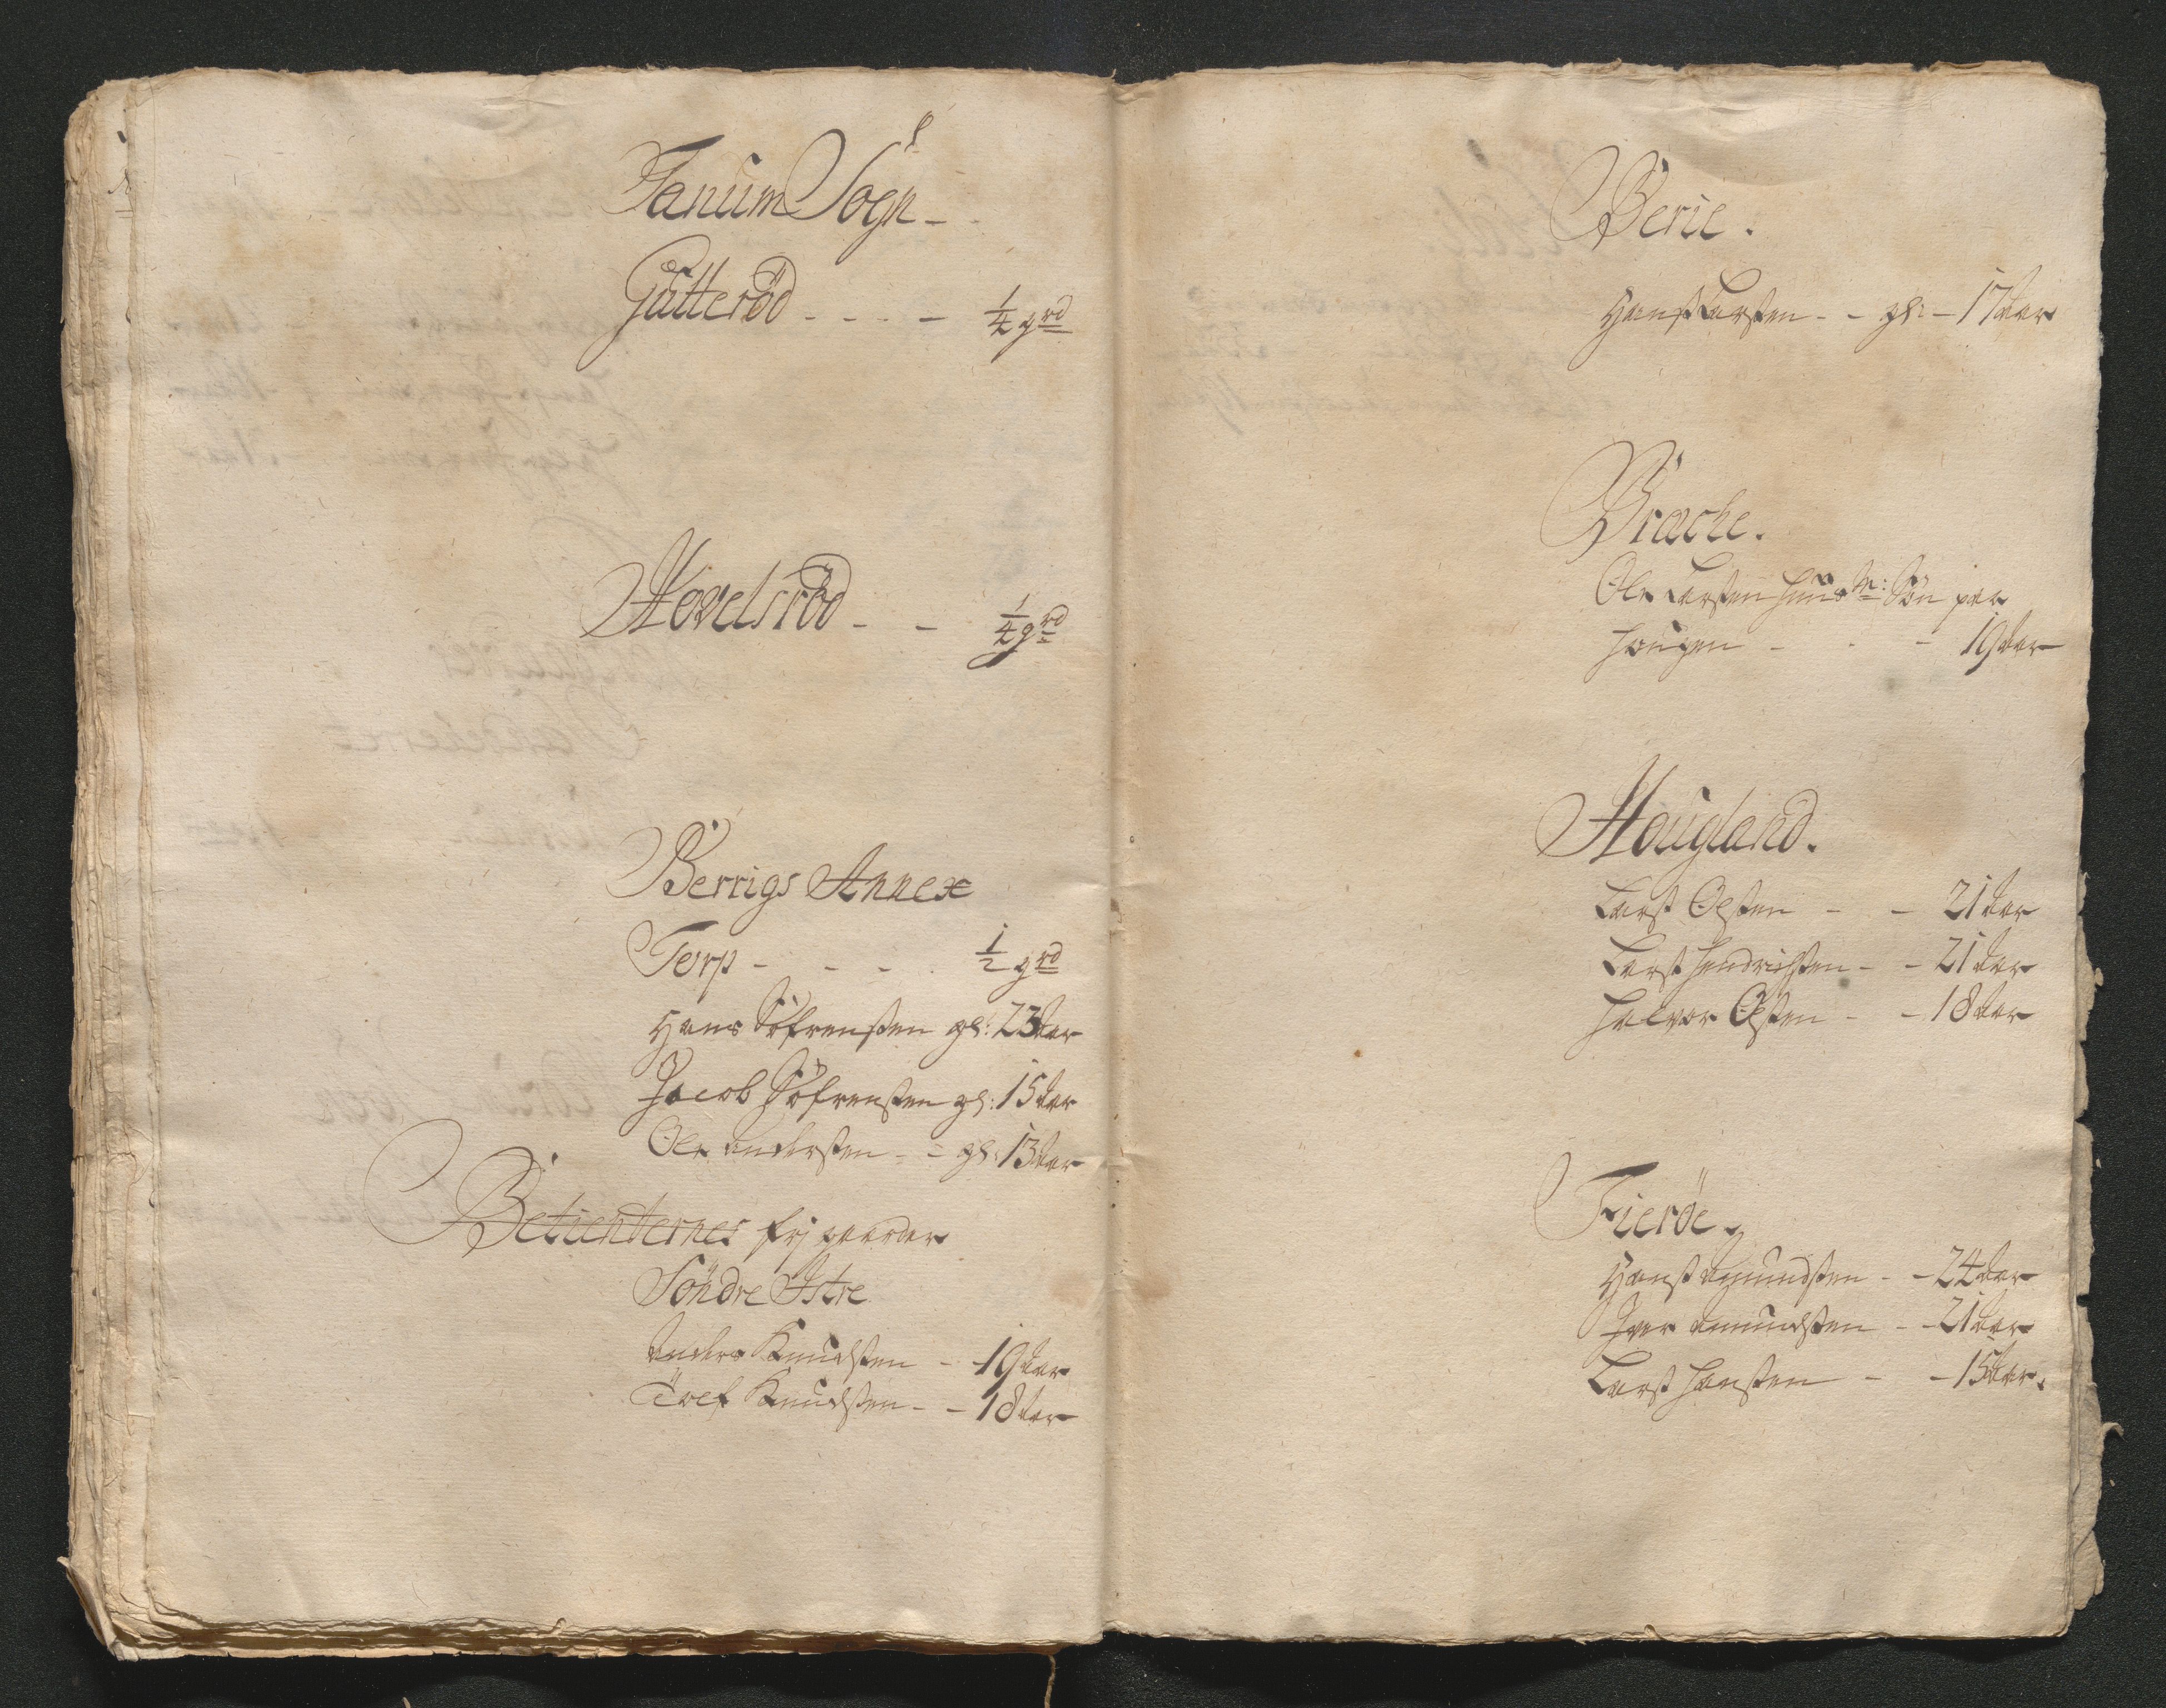 Tanum Sogn
Gutteröd - - - - 1/4 grd
Hovelsröd - - 1/4 grd
Berrigs Annex
Torp - - - - 1/2 grd
Hans Söfrensen gl: 23 aar
Jacob Söfrensen gl: 15 aar
Ole andersen - - gl: 13 aar
Betienternes frj gaarder
Söndre Istre
anders Knudsen - 19 aar
Knudsen - - 18 aar
Berie.
Hans Larsen - - gl: - 17 aar
Bræche.
Ole Larsen Sön paa
Haugen - - - 19 aar
Hougland.
Lars Olsen - - 21 aar
Lars Hendrichsen - - 21 aar
Halvor Olsen - - 18 aar
Fieröe
Hans Amundsen - - 24 aar
Iver Amundsen - - 21 aar
Lars Hansen - - 15 aar.